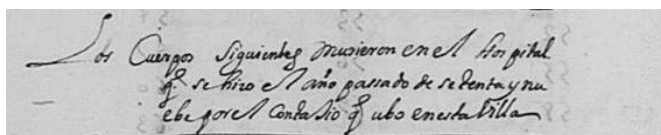 Los Cuerpos siguientes murieron en el Hospital
q̃ se hizo el año passado de setenta y nu
ebe por el Contasio q̃ ubo en esta Villa